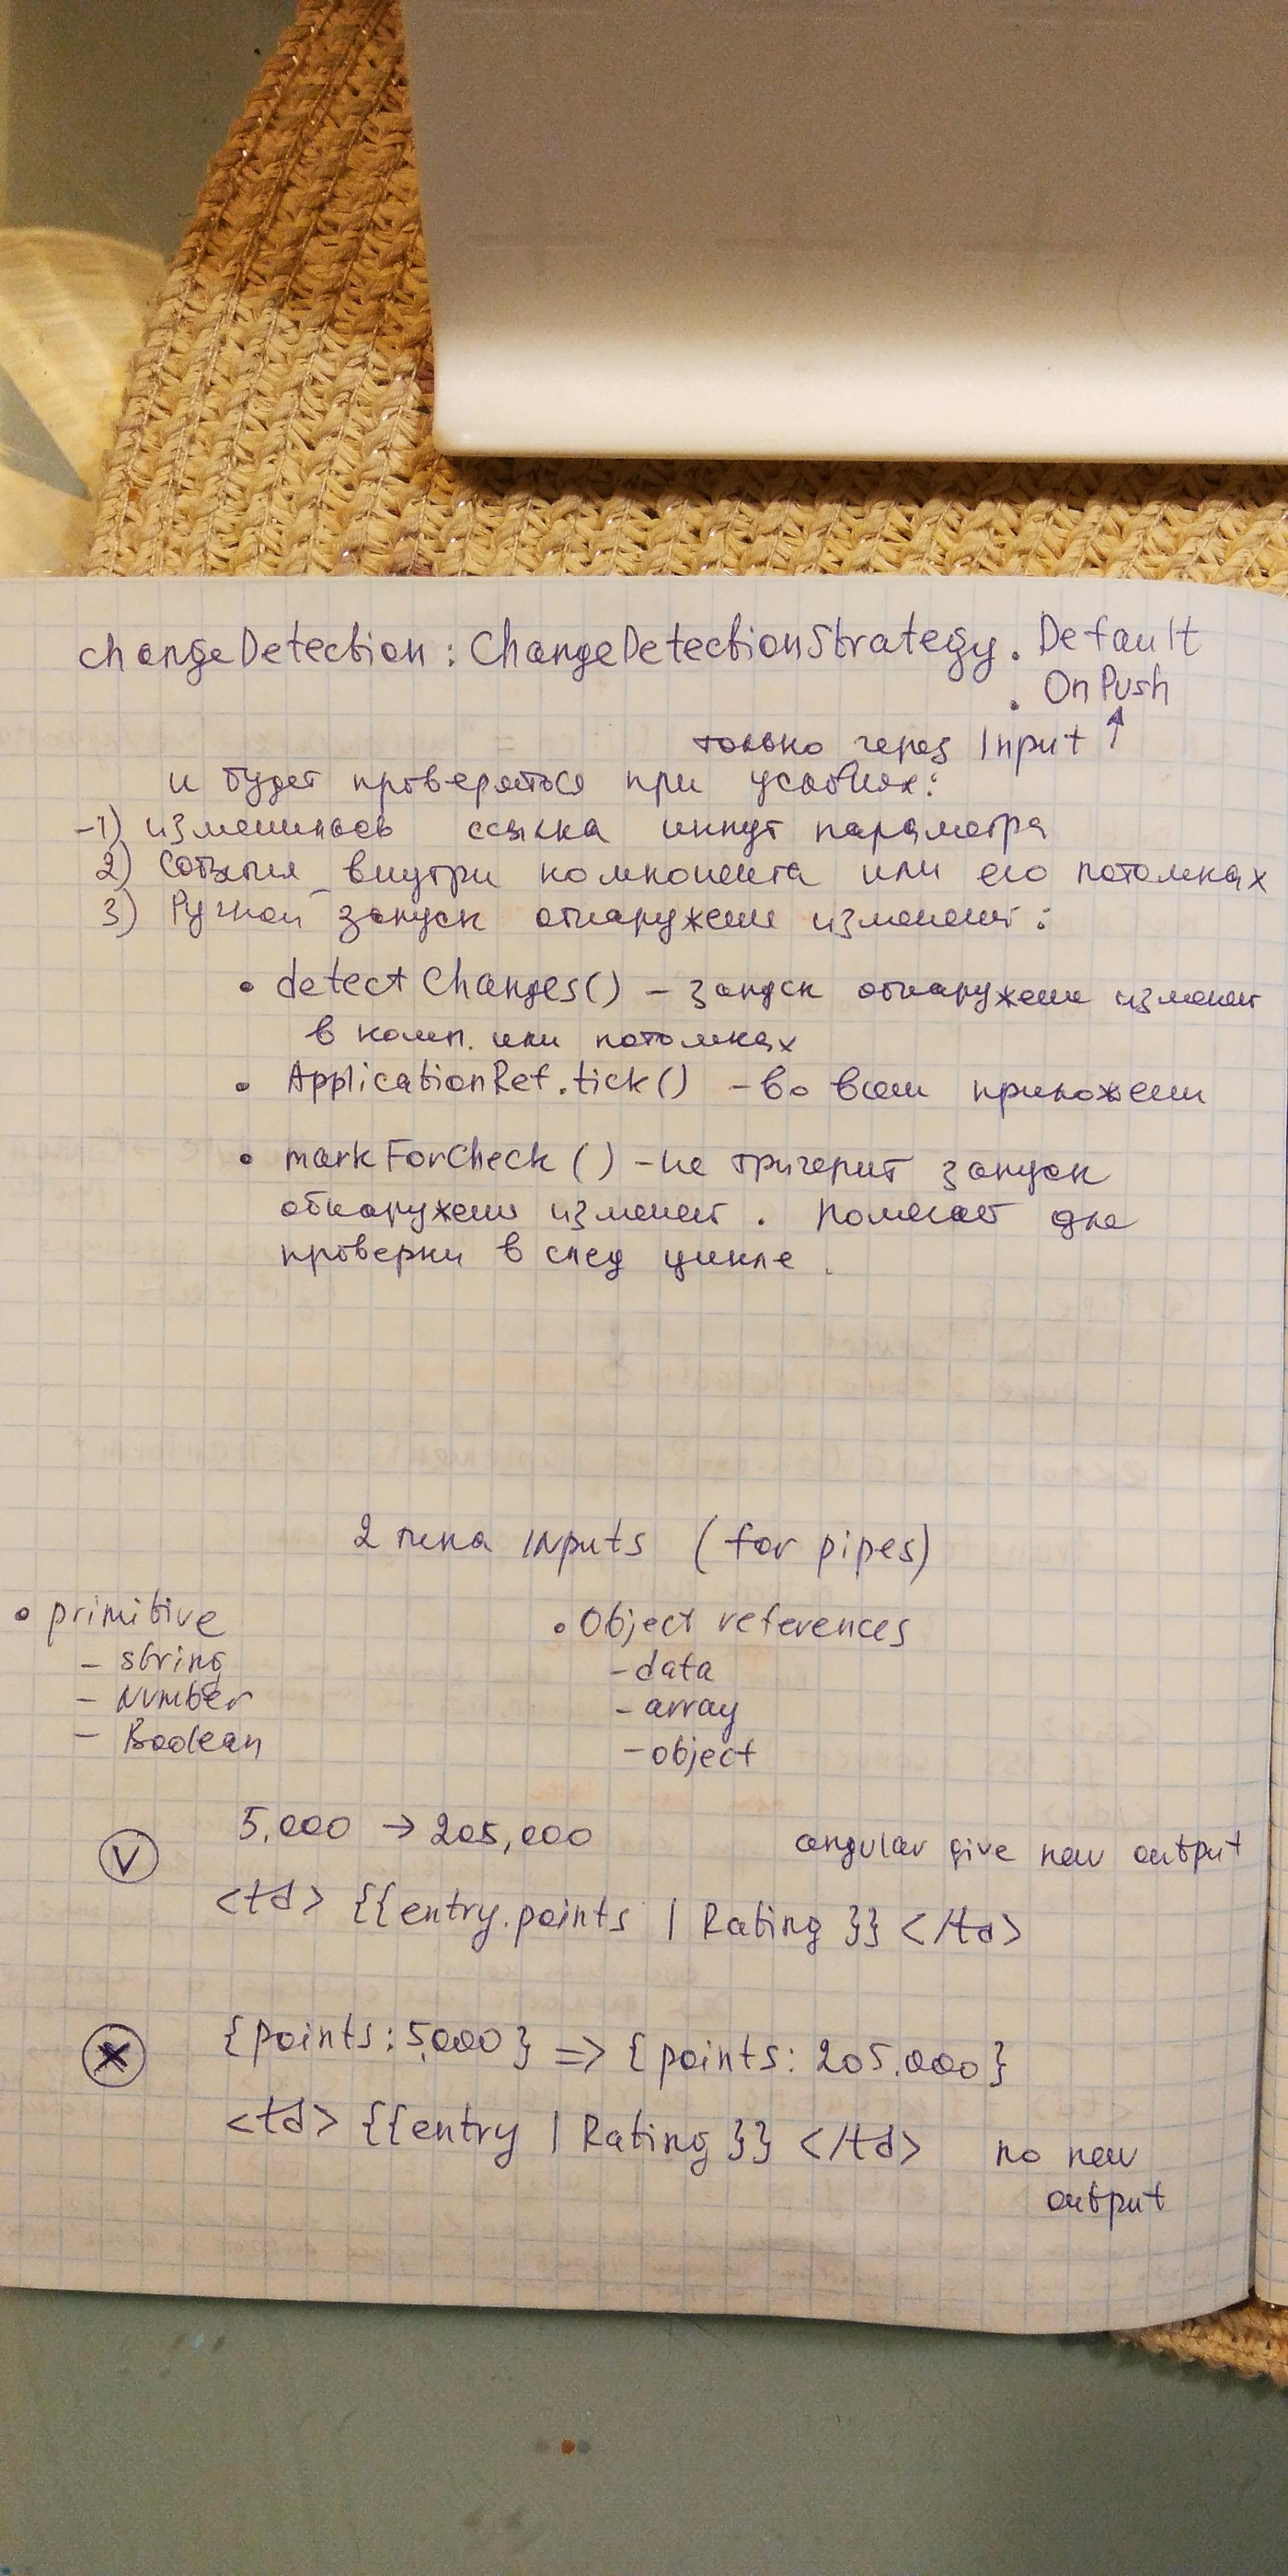 changeDetection : ChangeDetectionStrategy . Default
. OnPush
только через Input ↑
и будет проверяться при условиях:
-1) изменилась ссылка инпут параметра
2) События внутри компонента или его потомках
3) Ручной запуск обнаружения изменений :
• detectChanges() - запуск обнаружения изменен
в комп. или потомках
• ApplicationRef.tick() - во всем приложении
• markForCheck() - не тригерит запуск
обнаружения изменен . Помечает для
проверки в след цикле .
2 типа INputs (for pipes)
• primitive
- string
- Number
- Boolean
• Object references
- data
- array
- object
V 5,000 → 205,000 angular give new output
<td> {{entry.points | Rating }} </td>
X {points: 5,000} => {points: 205.000}
<td> {{entry | Rating }} </td> no new
output